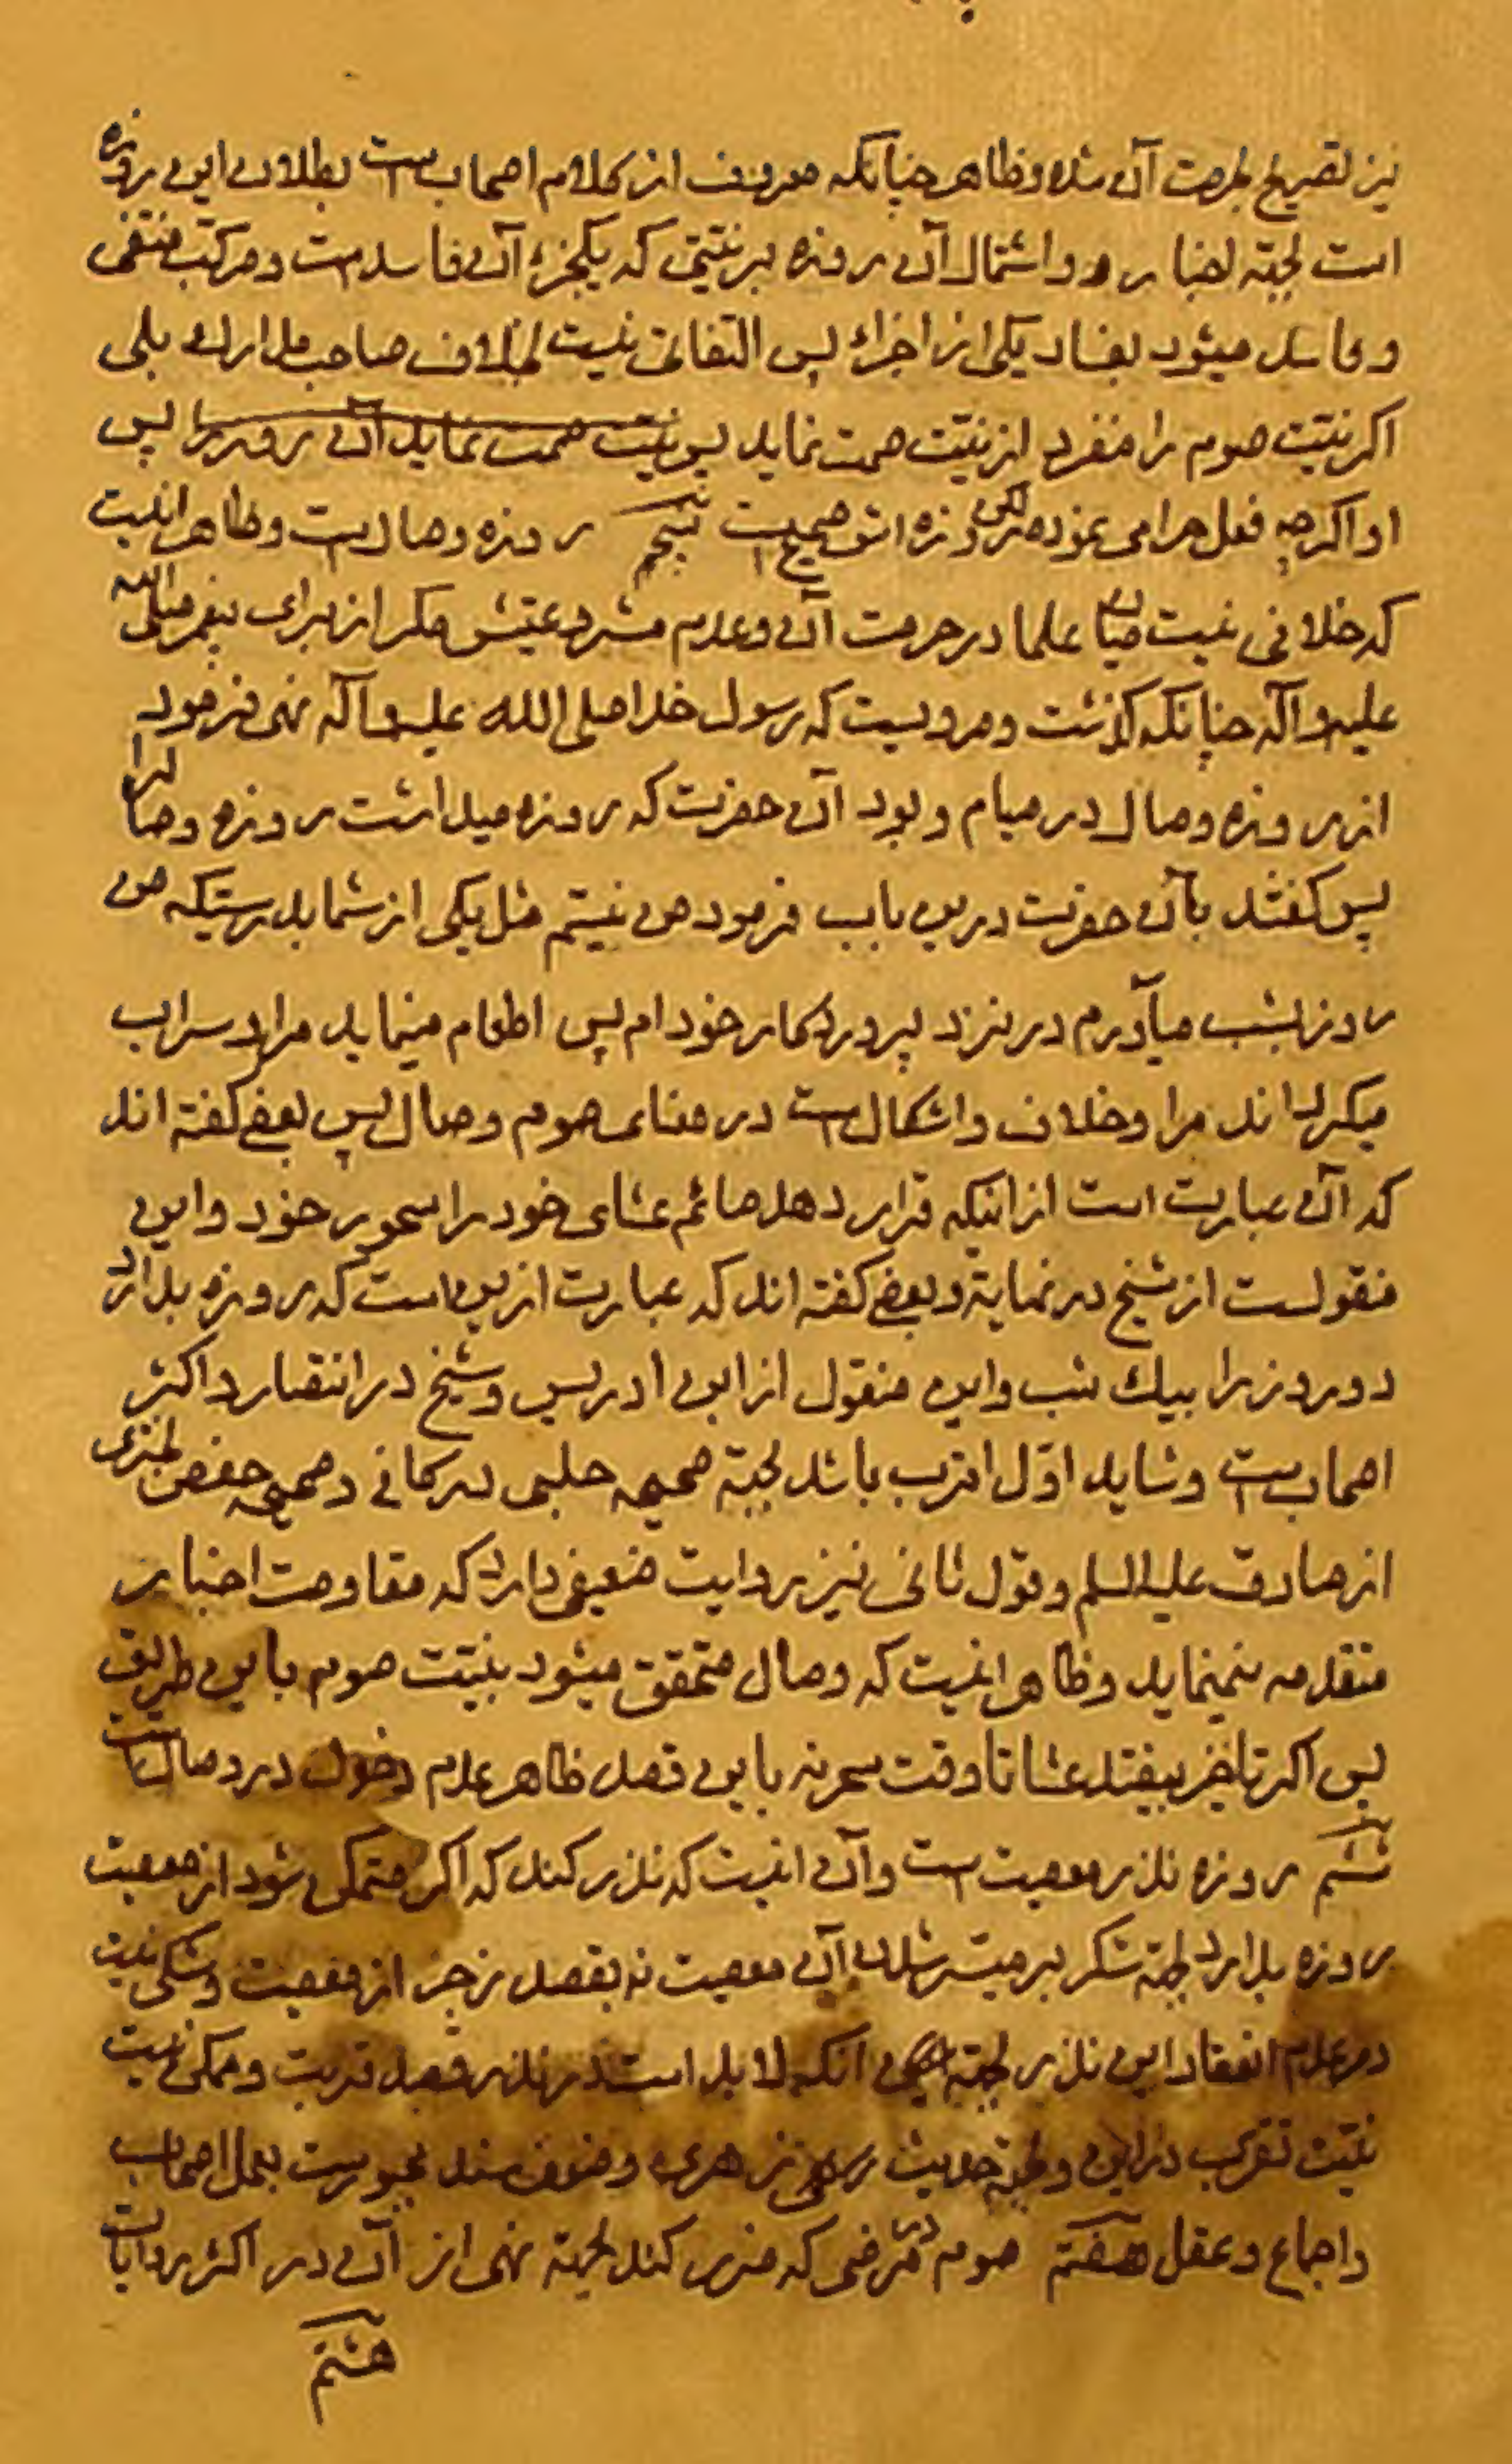 نیز تصریح بحرمت آن شده و ظاهر چنانکه معروف از کلام اصحابست بطلان این روزه
است بجهة اخبار و اشتمال آن روزه بر نیتی که یکجزء آن فاسدست و مرکب منتفی
و فاسد میشود بفساد یکی از اجزاء پس التفاتی نیست بخلاف صاحب مدارك بلی
اکر نیّت صوم را منفرد از نیّت صمت نماید پس نیت صمت نماید آن روز را پس
او اکرچه فعل حرامی نموده لکن روزه اش صحیح است پنجم روزه وصالست و ظاهر اینست
که خلافی نیست میان علما در حرمت آن و عدم مشروعیتش مکر از برای پیغمبر صلی الله
علیه و آله چنانکه کذشت و مرویست که رسول خدا صلی الله علیه و آله نهی فرمود
از روزه وصال در صیام و بود آن حضرت که روزه میداشت روزه وصال را
پس کفتند بآن حضرت درین باب فرمود من نیستم مثل یکی از شما بدرستیکه من
روز بشب میآورم در نزد پروردکار خود ام پس اطعام مینماید مرا و سراب
میکرداند مرا و خلاف و اشکالست در معنای صوم وصال پس بعضی کفته اند
که آن عبارت است از اینکه قرار دهد صائم عشای خود را سحور خود و این
منقولست از شیخ در نهایة و بعضی کفته اند که عبارت ازین است که روزه بدارد
دو روز را بیك شب و این منقول از ابن ادریس و شیخ در اقتصار و اکثر
اصحابست و شاید اوّل اقرب باشد بجهة صحیحه حلبی در کافی و صحیحه حفص بختری
از صادق علیه السلم و قول ثانی نیز روایت ضعیفی دارد که مقاومت اخبار
متقدمه نمینماید و ظاهر اینست که وصال متحقق میشود بنیّت صوم باین طریق
پس اکر تاخیر بیفتد عشا تا وقت سحر نه باین قصد ظاهر عدم دخول در وصالست
ششم روزه نذر معصیت ست و آن اینست که نذر کند که اکر متمکن شود از معصیت
روزه بدارد بجهة شکر بر میسر شدن آن معصیت نه بقصد زجر از معصیت و شکی نیست
در عدم انعقاد این نذر بجهة آنکه لا بد است در نذر قصد قربت و ممکن نیست
نیّت تقرب در این و بجهة حدیث زهری و ضعف سند مجبورست بعمل اصحاب
و اجماع و عقل هفتم صوم در مرضی که ضرر کند بجهة نهی از آن در اکثر روایات
هشتم